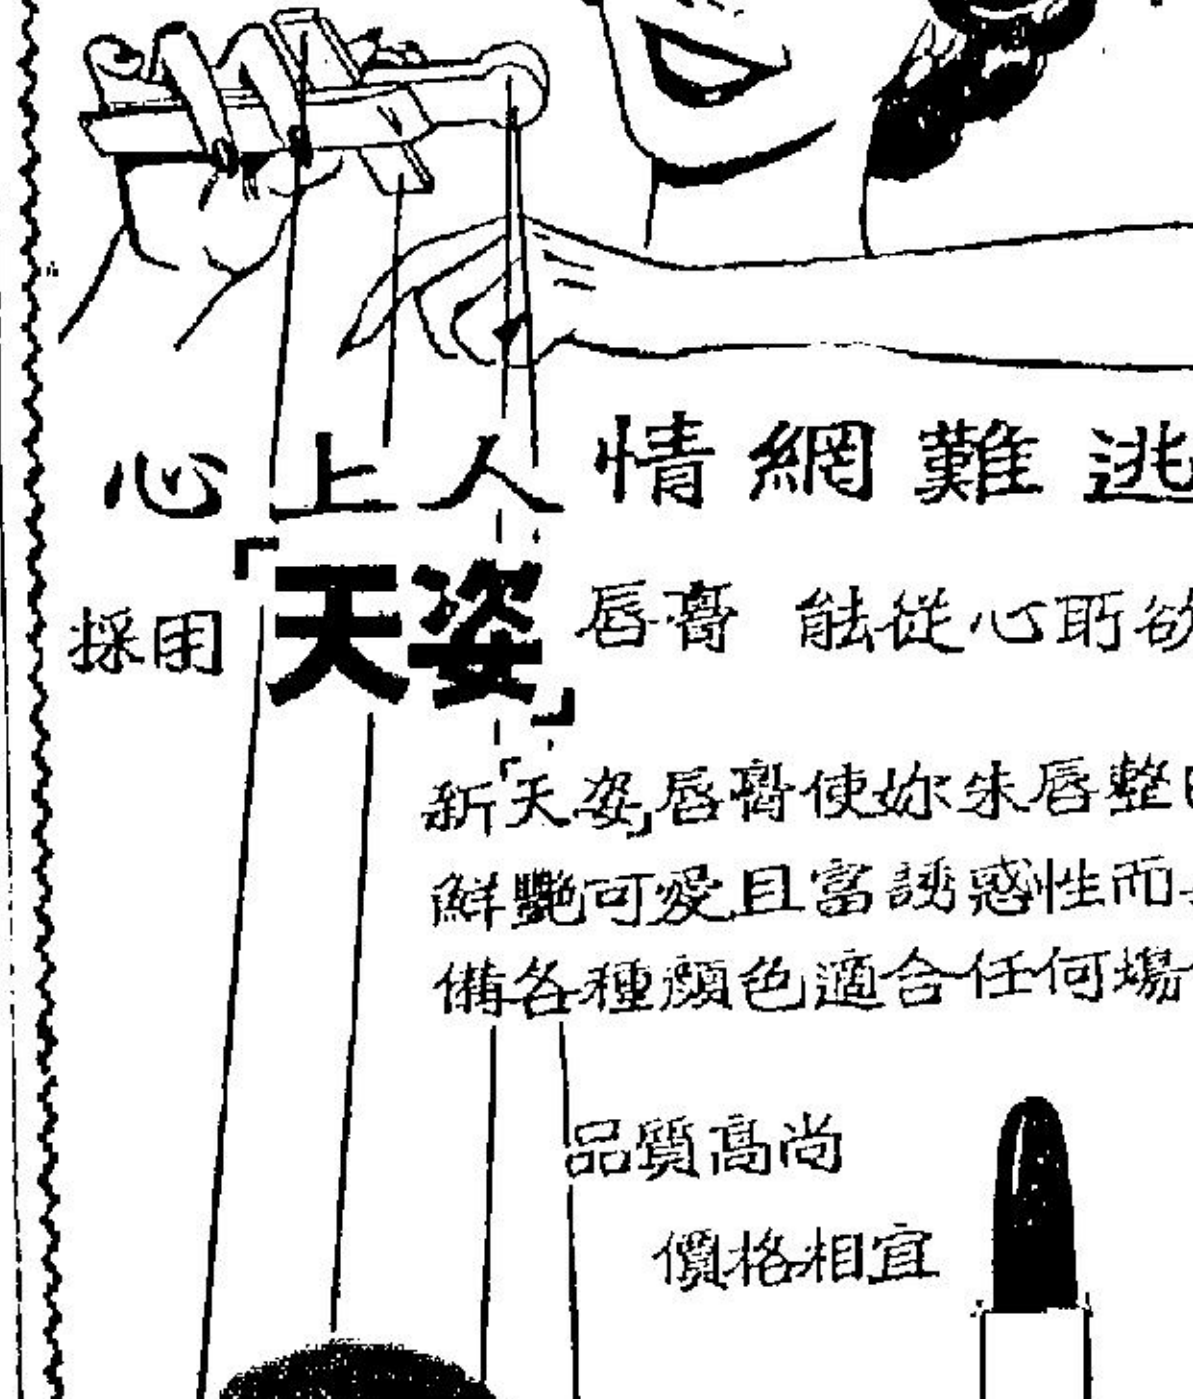 心上人情網難逃
採用「天姿」唇膏 能從心所欲
新「天姿」唇膏使妳朱唇整日
鮮艷可愛且富誘惑性而具
備各種顏色適合任何場合
品質高尚
價格相宜